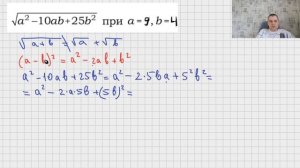 √a²−10ab+25b² при a = 9, b = 4
√a+b = √a + √b
(a − b)² = a² − 2ab + b²
a² − 10ab + 25b² = a² − 2·5ab + 5²b² =
= a² − 2·a·5b + (5b)² =